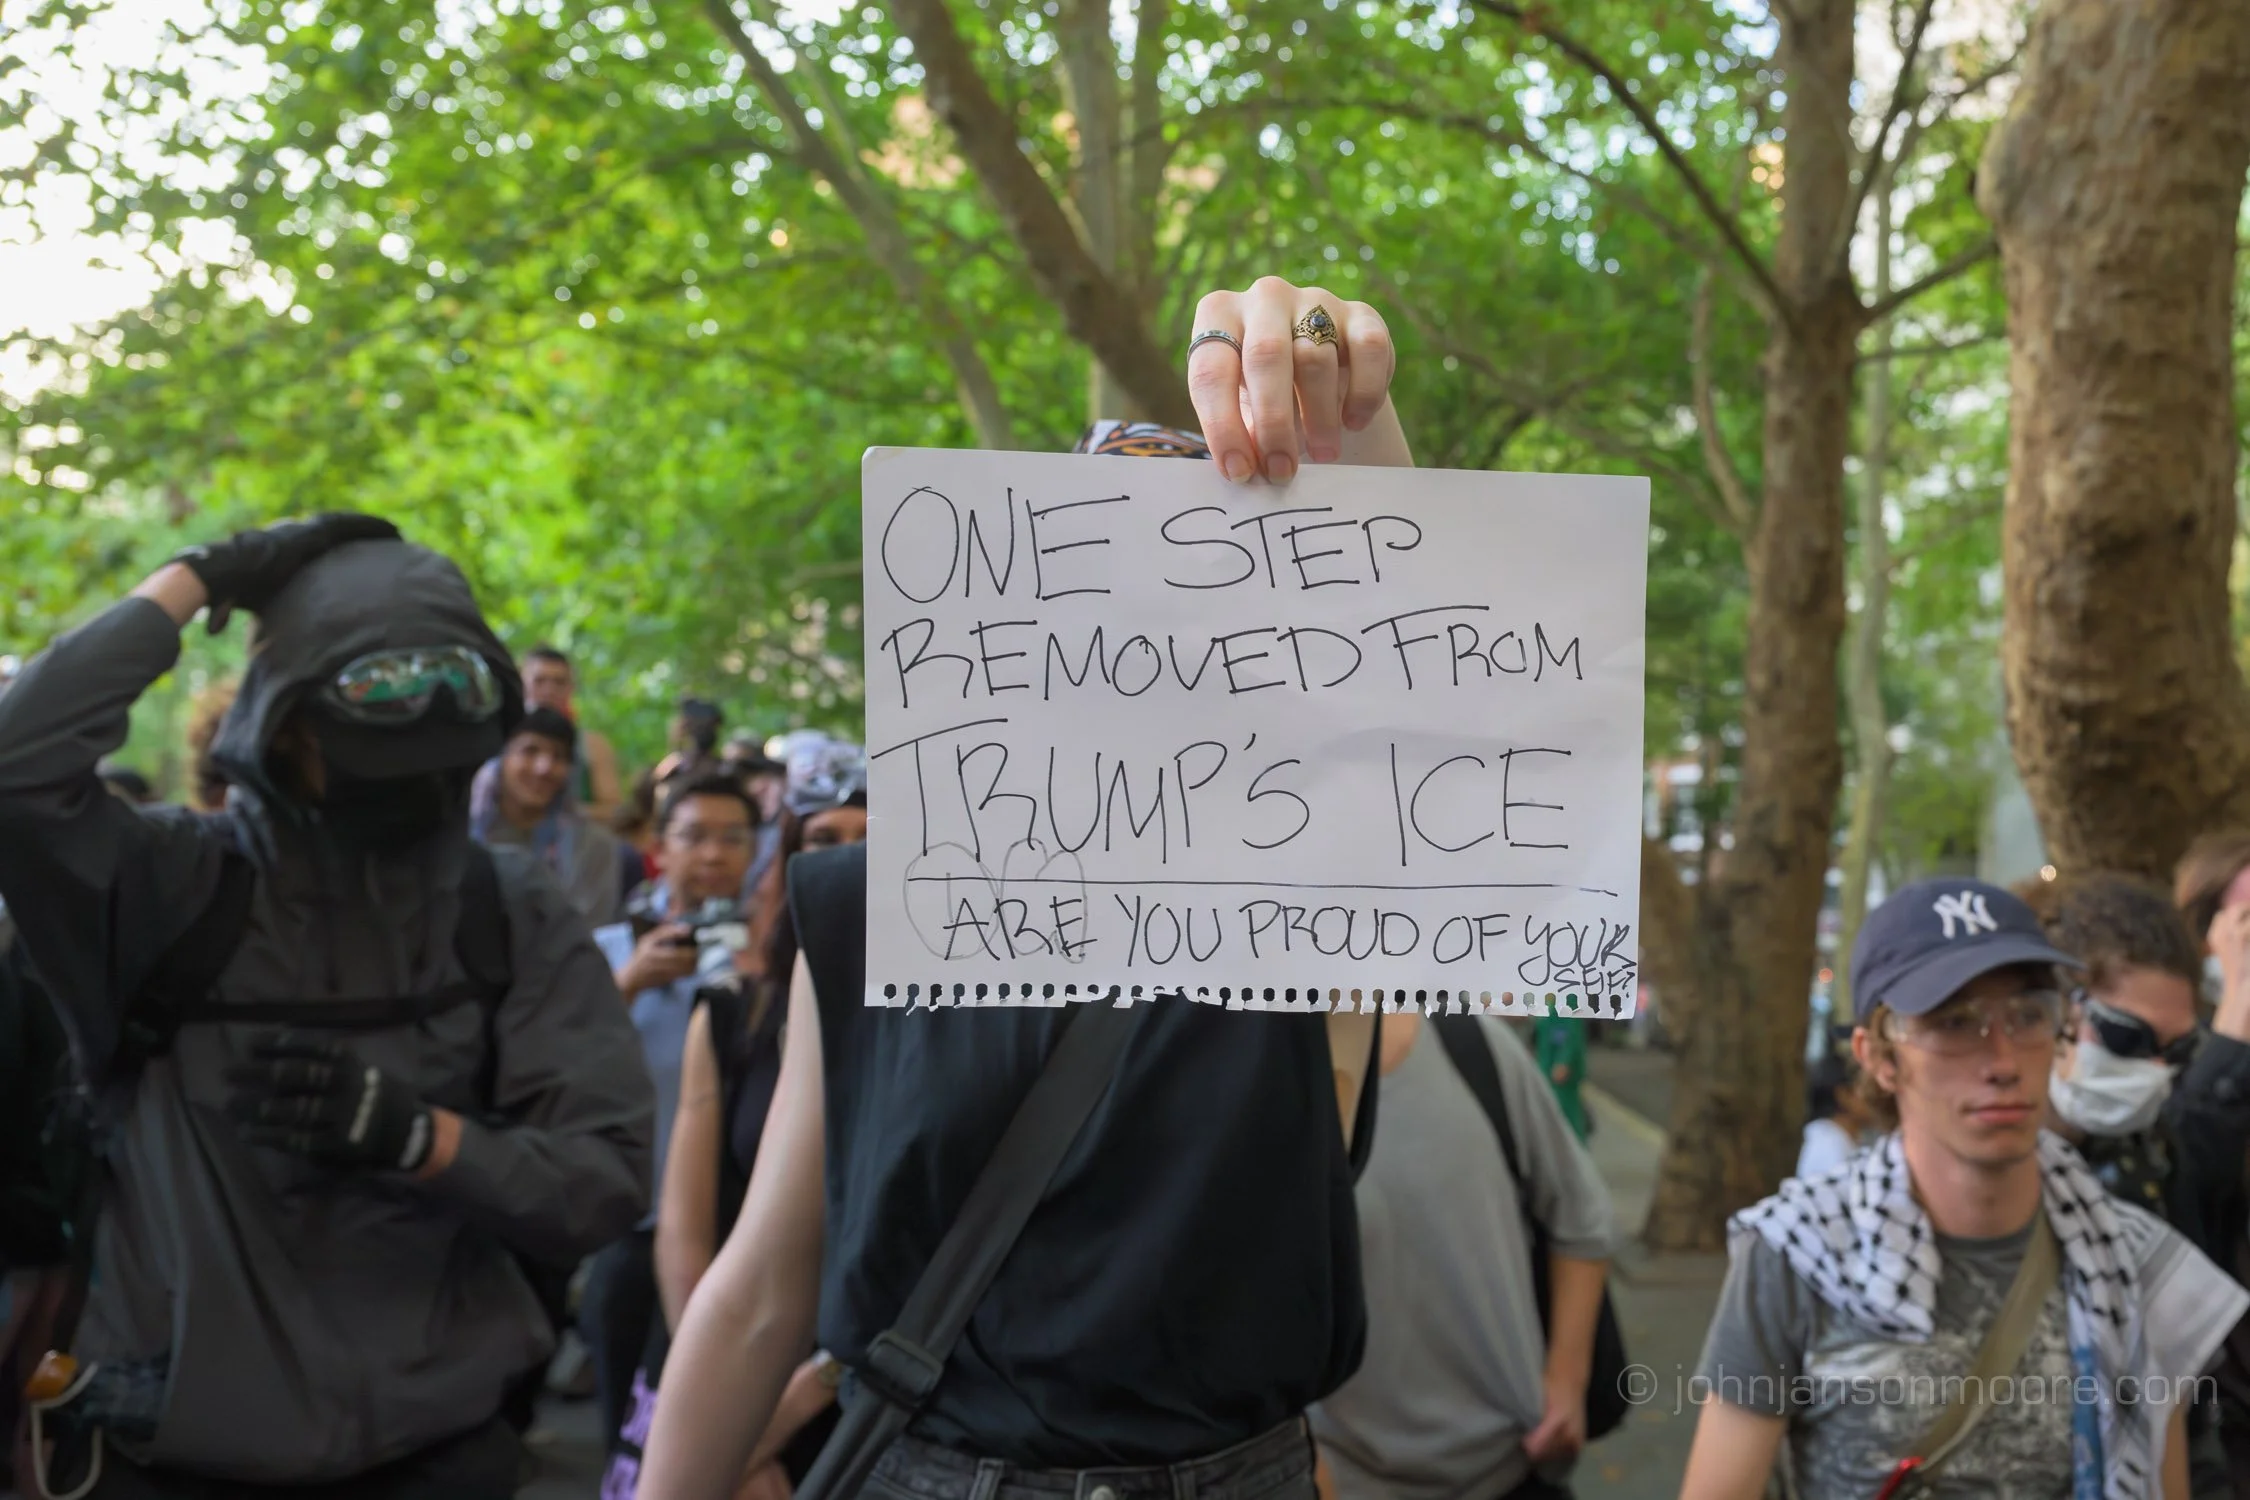 ONE STEP
REMOVED FROM
TRUMP'S ICE
ARE YOU PROUD OF YOUR
SELF?
NY
© johnjansonmoore.com